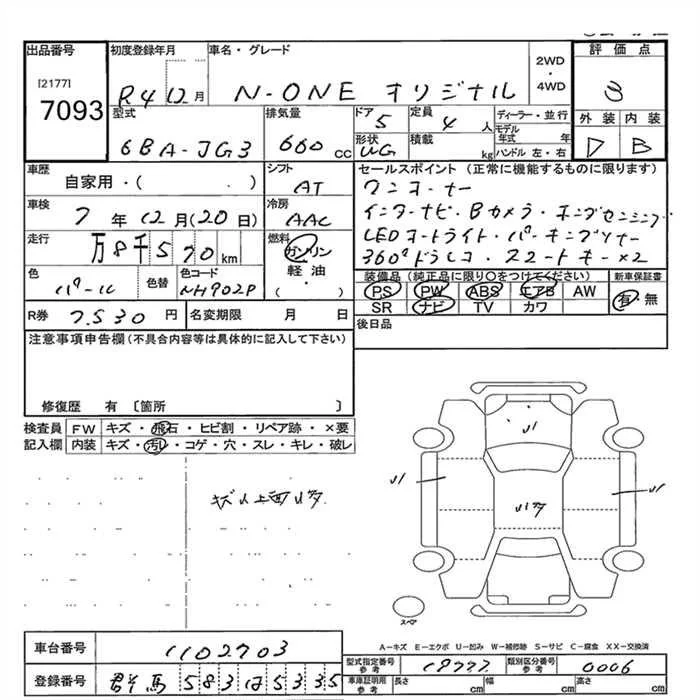 出品番号 初度登録年月 車名・グレード 2WD ・ 4WD 評価点
[2177] 7093 R4 12月 N-ONE オリジナル 3
型式 排気量 ドア 定員 ディーラー・並行 外装 内装
6BA-JG3 660cc 5 4人 モデル年式 年 D B
形状 積載 ハンドル 左・右
UG kg
車歴 シフト セールスポイント(正常に機能するものに限ります)
自家用・( . ) AT ワンオーナー
車検 冷房 インターナビ・Bカメラ・ホンダセンシング
7年12月(20日) AAC LEDオートライト・パーキングソナー
走行 燃料 360°ドラレコ・スマートキー×2
万8千570km ガソリン
軽油 ・ ( )
色 色替 色コード 装備品(純正品に限り〇をつけてください) 新車保証書
パール NH902P PS PW ABS エアB AW 有・無
SR ナビ TV カワ
R券 7,530円 名変期限 月 日 後日品
注意事項申告欄(不具合内容等は具体的に記入して下さい)
修復歴 有 〔箇所 〕
検査員 FW キズ・飛石・ヒビ割・リペア跡・×要
記入欄 内装 キズ・汚れ・コゲ・穴・スレ・キレ・破レ
U1
U1 U1
スペア
A-キズ E-エクボ U-凹み W-補修跡 S-サビ C-腐食 XX-交換済
車台番号 1102703 型式指定番号 参考 類別区分番号 参考 0006
登録番号 群馬 583 ほ 5335 車庫証明用 参考 長さ cm 幅 cm 高さ cm